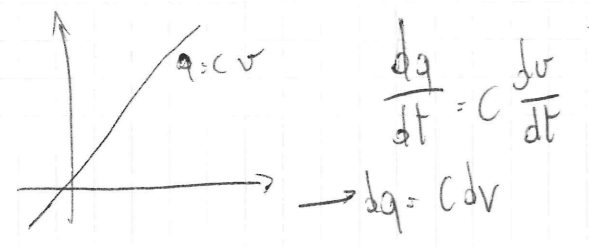 q = C v
dq/dt = C dv/dt
→ dq = C dv